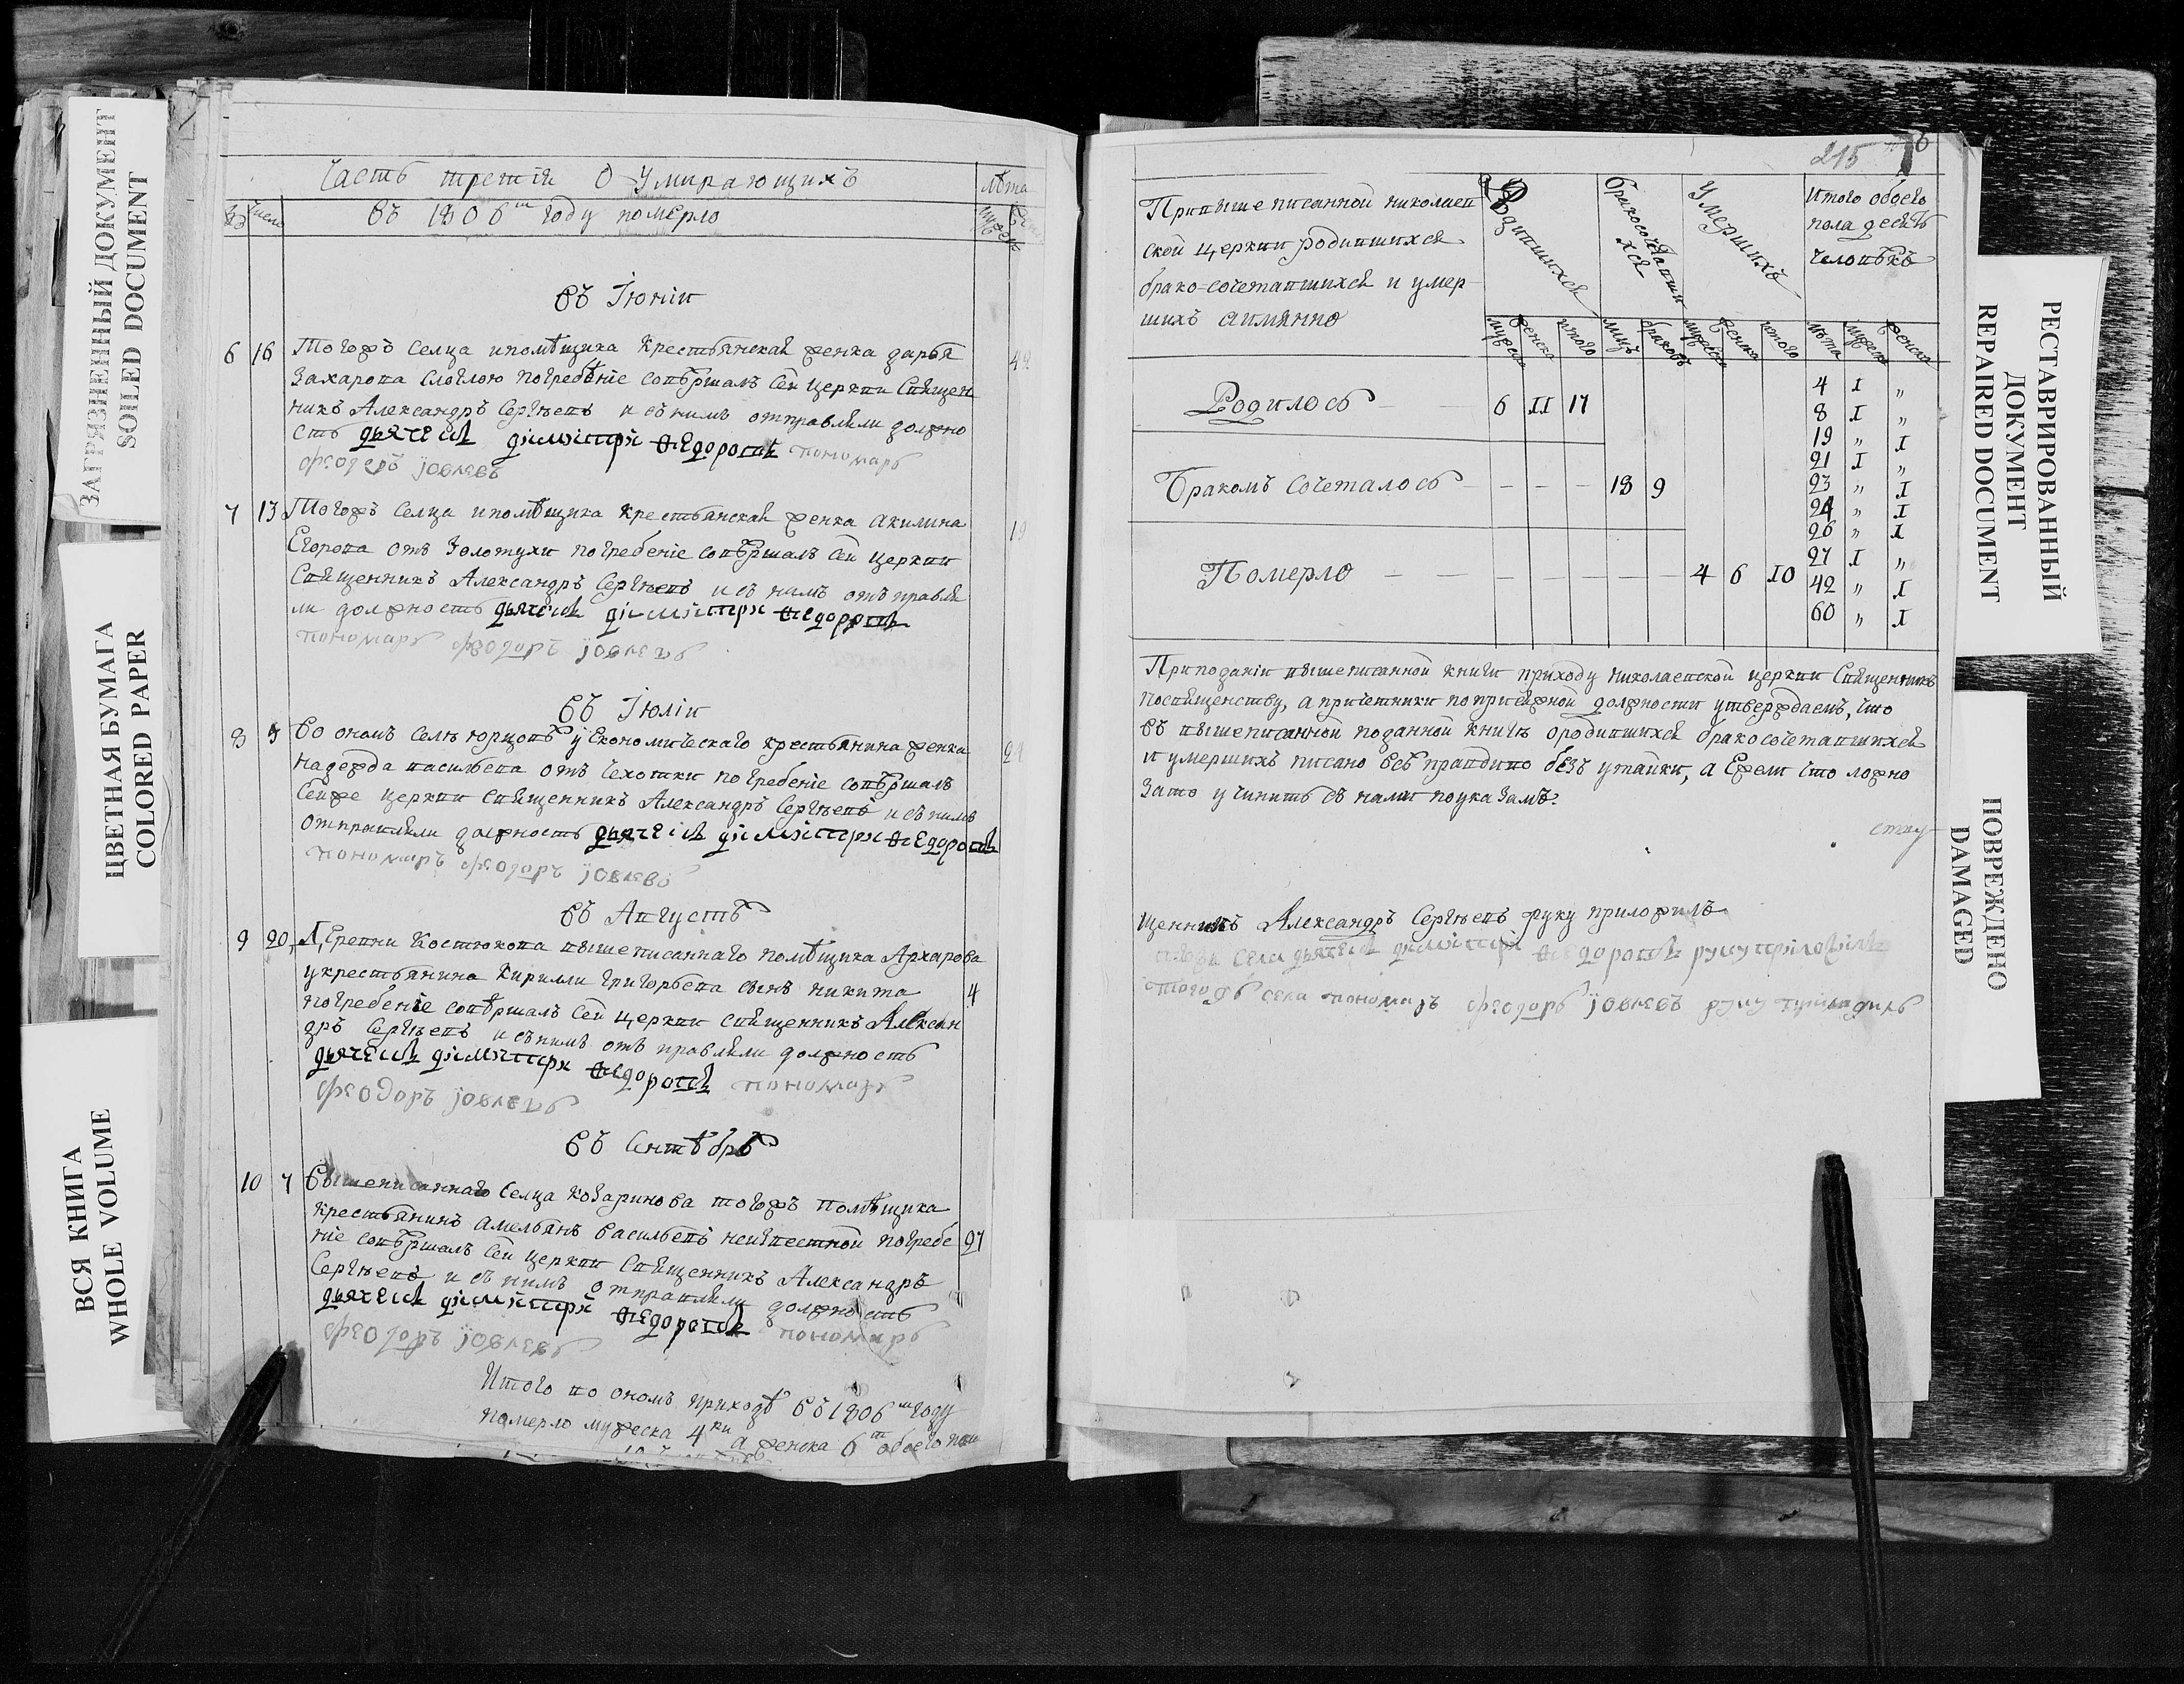 ЗАГРЯЗНЕННЫЙ ДОКУМЕНТ
SOILED DOCUMENT
ЦВЕТНАЯ БУМАГА
COLORED PAPER
ВСЯ КНИГА
WHOLE VOLUME
Часть третія О Умирающихъ лѣта
Число въ 1806м году померло
Въ Іюніи
6 16 Тогожъ селца и помѣщика крестьянская женка дарья 42
Захарова погребѣніе совѣршалъ сей церкви Священ
никъ Александръ Сергѣевъ и съ нимъ отправляли должно
сть дьячекъ дімітріи Ѳедоровъ пономарь
Ѳеодоръ Іовлевъ
7 13 Тогожъ селца и помѣщика крестьянская женка акилина 19
Егорова отъ Золотухи погребеніе совѣршалъ сей церкви
Священникъ Александръ Сергѣевъ и съ нимъ отъправля
ли должность дьячекъ дімітріи Ѳедоровъ
пономарь Ѳеодоръ Іовлевъ
Въ Іюліи
8 Во ономъ селѣ юрцовѣ у Економическаго крестьянина женка
надежда васильева отъ чехотки погребеніе совѣршалъ
сейже церкви священникъ Александръ Сергѣевъ и съ нимъ
отправляли должность дьячекъ дімітріи Ѳедоровъ
пономаръ Ѳеодоръ Іовлевъ
Въ Августѣ
9 20 Деревни Костюкова вышеписаннаго помѣщика Архарова
у крестьянина Кирилли григорьева сынъ никита 4
погребеніе совѣршалъ сей церкви священникъ Алексан
дръ Сергѣевъ и съ нимъ отъ правляли должность
дьячекъ дімітріи Ѳедоровъ пономарь
Ѳеодоръ Іовлевъ
Въ Сентѣбрѣ
10 7 Вышеписаннаго селца Козаринова тогожъ помѣщика
крестьянинъ амельянъ Васильевъ неизвестной погребе 27
ніе совѣршалъ сей церкви Священникъ Александръ
Сергѣевъ и съ нимъ отправляли должность
дьячекъ дімітріи Ѳедоровъ пономарь
Ѳеодоръ Іовлевъ
Итого во ономъ приходѣ въ 1806м году
померло мужеска 4ри а женска 6т обоего пола
215
При выше писанной николаев
ской церкви родившихся
брако=сочетавшихся и умер
шихъ аимянно
Родившихся
бракосочетавши
хся
Умершихъ
Итого обоего
пола десять
человѣкъ
мужеск женска итого лицъ браковъ мужеск женска итого лѣта мужеск женска
Родилось 6 II 17
Бракомъ сочеталось 18 9
Померло 4 6 I0
4 I „
8 I „
19 „ I
21 I „
23 „ I
24 „ I
26 „ I
27 I „
42 „ I
60 „ I
При поданіи вышеписанной книги приходу николаевской церкви Священникъ
по священству, а причетники по присяжной должности утверждаемъ, что
въ вышеписанной поданной книгѣ ородившихся бракосочетавшихся
и умершихъ писано всѣ правдиво безъ утайки, а Ежели что ложно
Зато учинить съ нами по указамъ.
щенникъ Александръ Сергѣевъ руку приложилъ
села дьячекъ дімітріи Ѳедоровъ руку приложилъ
тогожъ села пономарь Ѳеодоръ Іовлевъ руку приложилъ
РЕСТАВРИРОВАННЫЙ
ДОКУМЕНТ
REPAIRED DOCUMENT
ПОВРЕЖДЕНО
DAMAGED